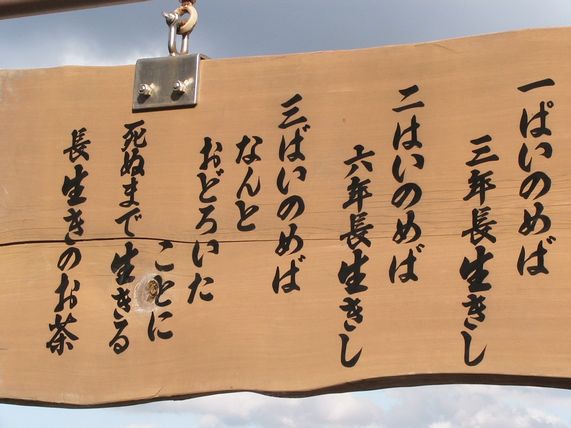 一ぱいのめば
三年長生きし
二はいのめば
六年長生きし
三ばいのめば
なんと
おどろいた
ことに
死ぬまで生きる
長生きのお茶